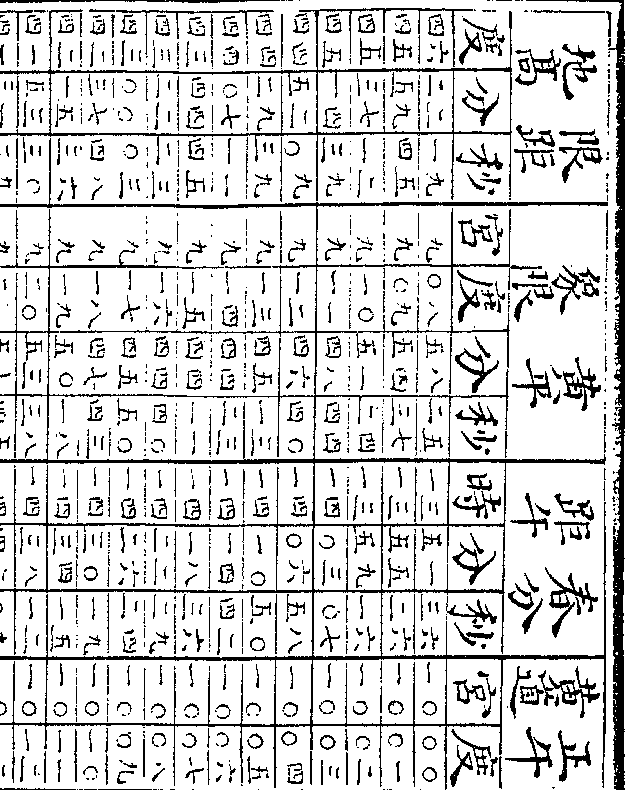 地高 限距 象限 黃平 距午 春分 黃道 正午
度 分 秒 宮 度 分 秒 時 分 秒 宮 度
四六 二二 一九 九 〇八 五八 二五 一三 五一 三六 一〇 〇〇
四五 五九 四五 九 〇九 五四 三七 一三 五五 二六 一〇 〇一
四五 三七 一二 九 一〇 五一 二四 一三 五九 一六 一〇 〇二
四五 一四 三九 九 一一 四八 四四 一四 〇三 〇七 一〇 〇三
四四 五二 〇九 九 一二 四六 四〇 一四 〇六 五八 一〇 〇四
四四 二九 三九 九 一三 四五 一三 一四 一〇 五〇 一〇 〇五
四四 〇七 一一 九 一四 四四 二三 一四 一四 四二 一〇 〇六
四三 四四 四五 九 一五 四四 一一 一四 一八 三六 一〇 〇七
四三 二二 二三 九 一六 四四 四〇 一四 二二 二九 一〇 〇八
四三 〇〇 〇三 九 一七 四五 五〇 一四 二六 二四 一〇 〇九
四二 三七 四八 九 一八 四七 四三 一四 三〇 一九 一〇 一〇
四二 一五 三六 九 一九 五〇 一八 一四 三四 一五 一〇 一一
四一 五三 三〇 九 二〇 五三 三八 一四 三八 一二 一〇 一二